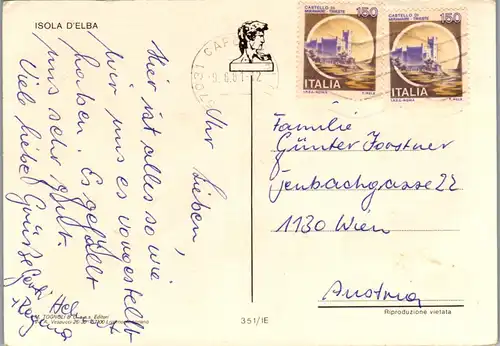 ISOLA D'ELBA
Ihr Lieben,
Hier ist alles so wie
wir uns es vorgestellt
haben. Es gefällt
uns sehr gut.
Viele liebe Grüße Gerti
Hel
+ Regina
CASTELLO DI
MIRAMARE - TRIESTE
150
ITALIA
I.P.Z.S. - ROMA
CASTELLO DI
MIRAMARE - TRIESTE
150
ITALIA
I.P.Z.S. - ROMA
CAP
Familie
Günter Forstner
Jenbachgasse 22
1130 Wien
Austria
Riproduzione vietata
351/IE
Editori